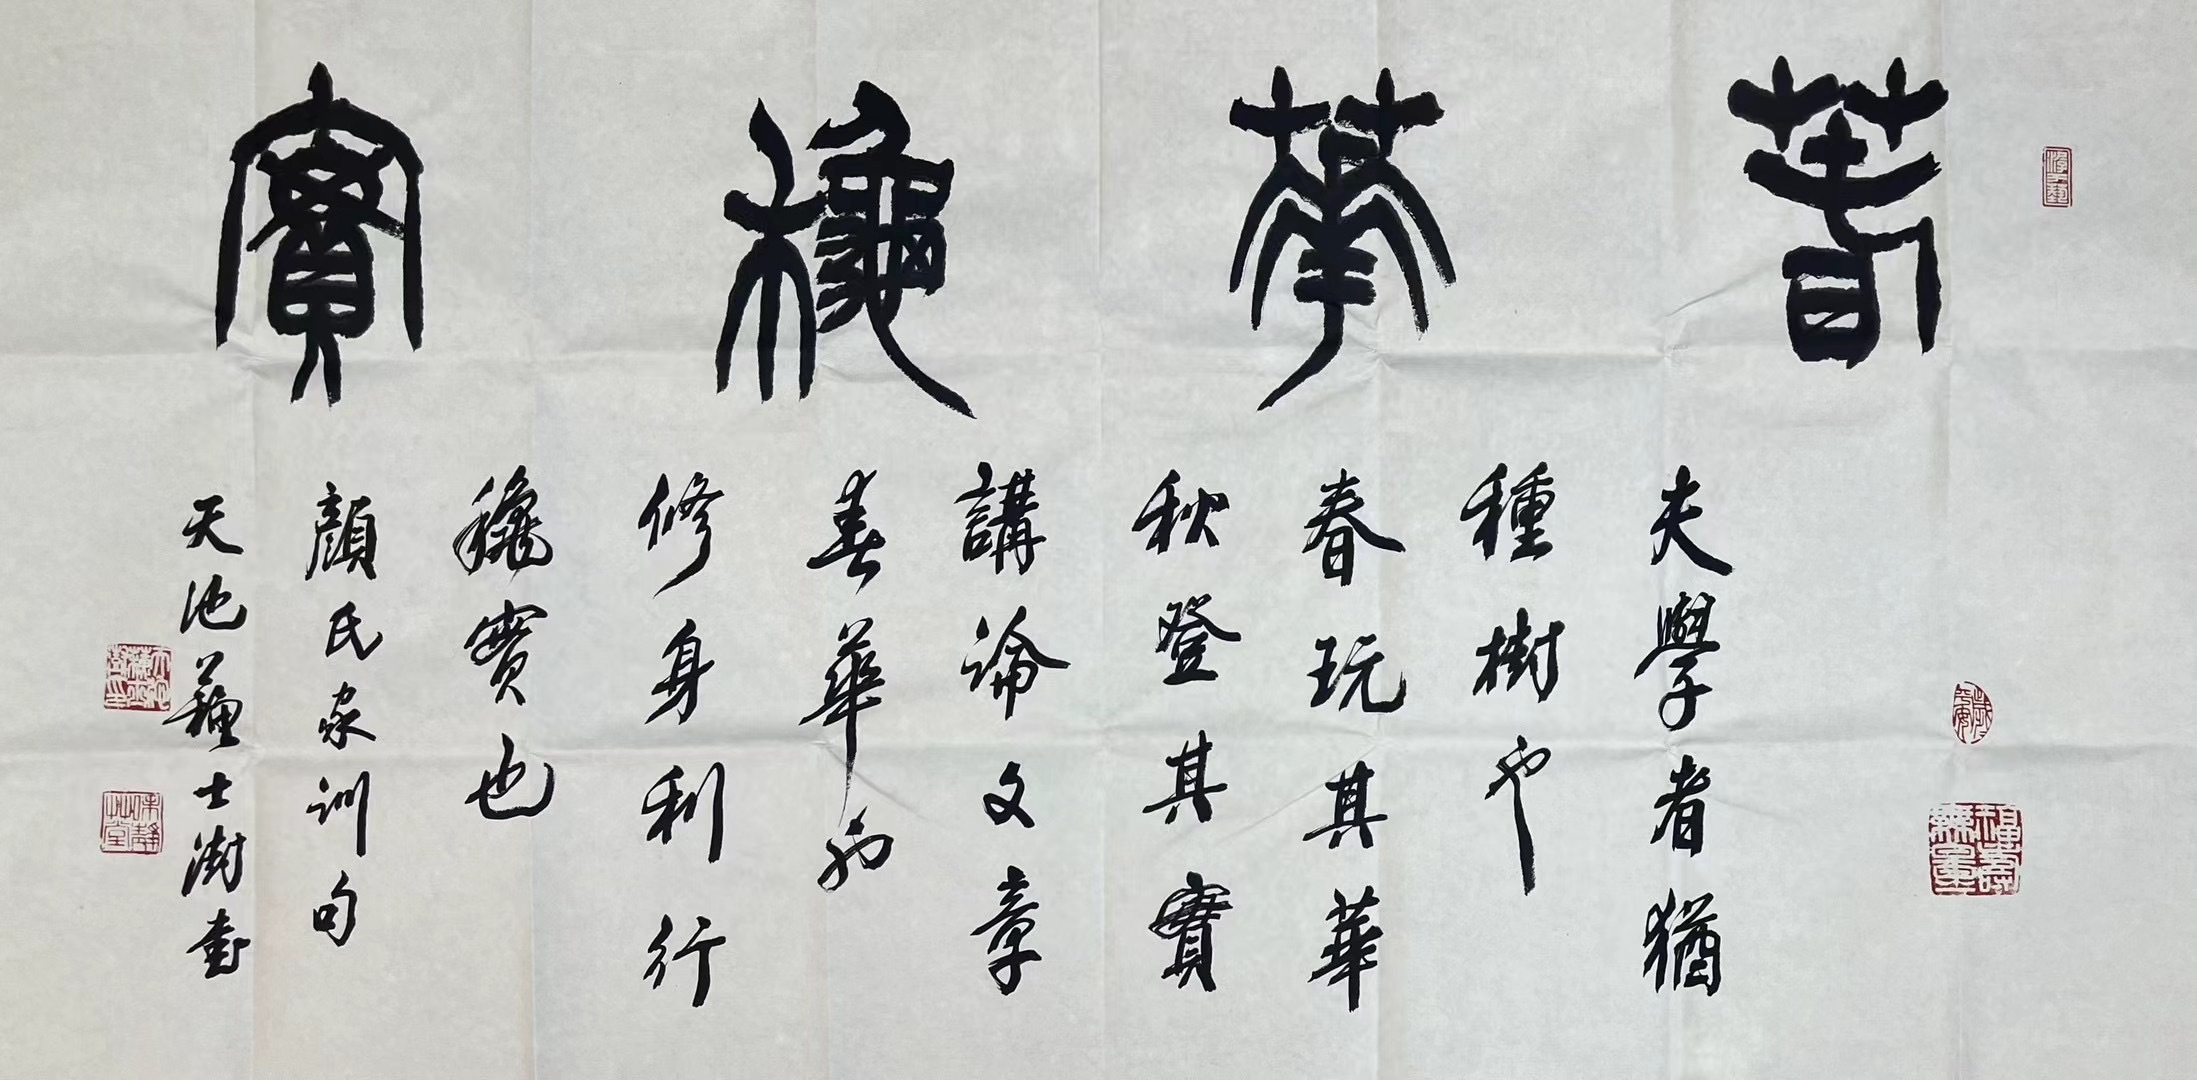 春華穐實
夫學者猶
種樹也
春玩其華
秋登其實
講論文章
春華也
修身利行
穐實也
顏氏家訓句
天池蘇士澍書
福壽無量